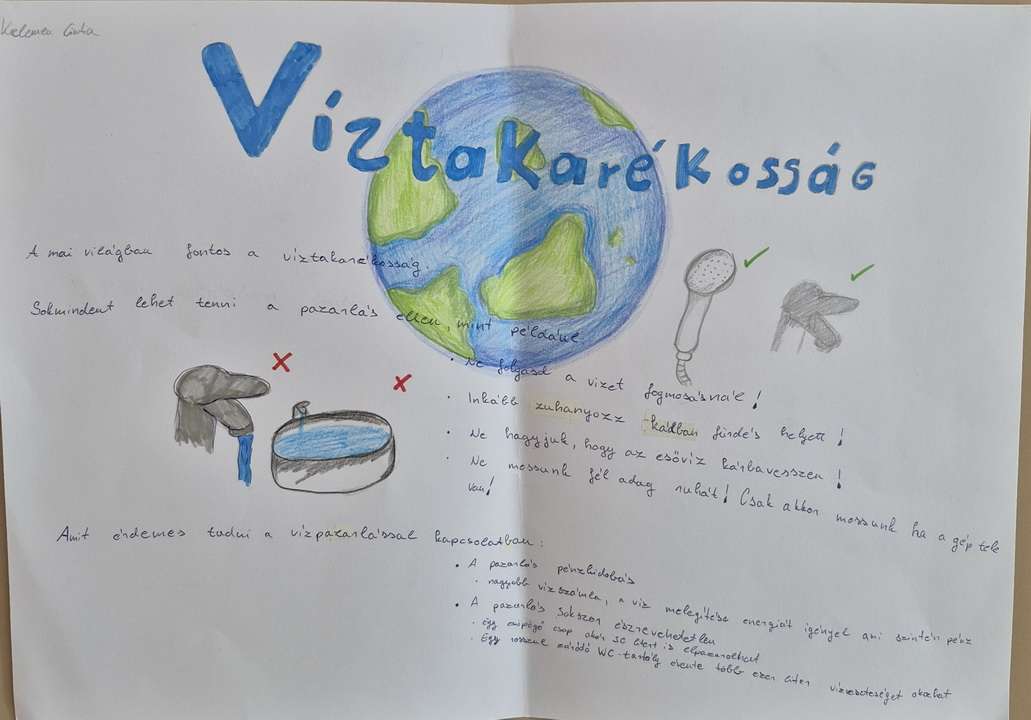 Kelemen
Víztakarékosság
A mai világban fontos a víztakarékosság.
Sokmindent lehet tenni a pazarlás ellen, mint például
• Ne folyasd a vizet fogmosásnál!
• Inkább zuhanyozz kádban fürdés helyett!
• Ne hagyjuk, hogy az esővíz kárbavesszen!
• Ne mossunk fél adag ruhát! Csak akkor mossunk ha a gép tele
van!
Amit érdemes tudni a vízpazarlással kapcsolatban:
• A pazarlás pénzkidobás
• nagyobb vízszámla, a víz melegítése energiát igényel ami szintén pénz
• A pazarlás sokszor észrevehetetlen
• egy csöpögő csap akár litert is elpazarolhat
• Egy rosszul záródó WC-tartály évente több ezer liter vízveszteséget okozhat